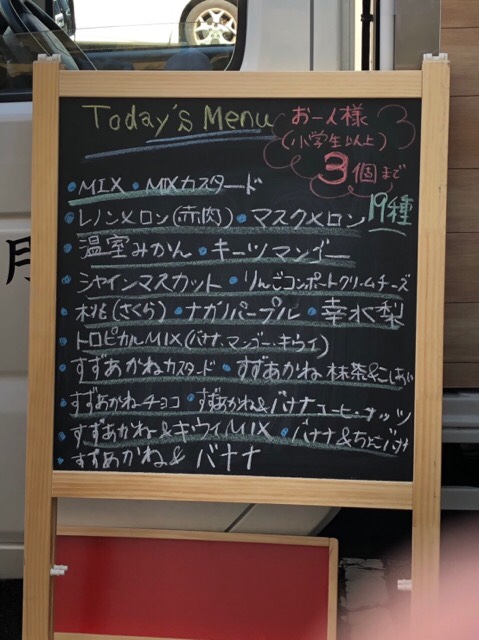 Today's Menu
お一人様
(小学生以上)
3個まで
19種
・MIX ・MIXカスタード
レノンメロン(赤肉)・マスクメロン
・温室みかん・キーツマンゴー
・シャインマスカット・りんごコンポートクリームチーズ
・桃(さくら)・ナガノパープル・幸水梨
・トロピカルMIX(バナナ・マンゴー・キウイ)
・すずあかねカスタード・すずあかね抹茶&こしあん
・すずあかねチョコ・すずあかね&バナナコーヒーナッツ
・すずあかね&キウイMIX・バナナ&ちびバナナ
・すずあかね&バナナ
月